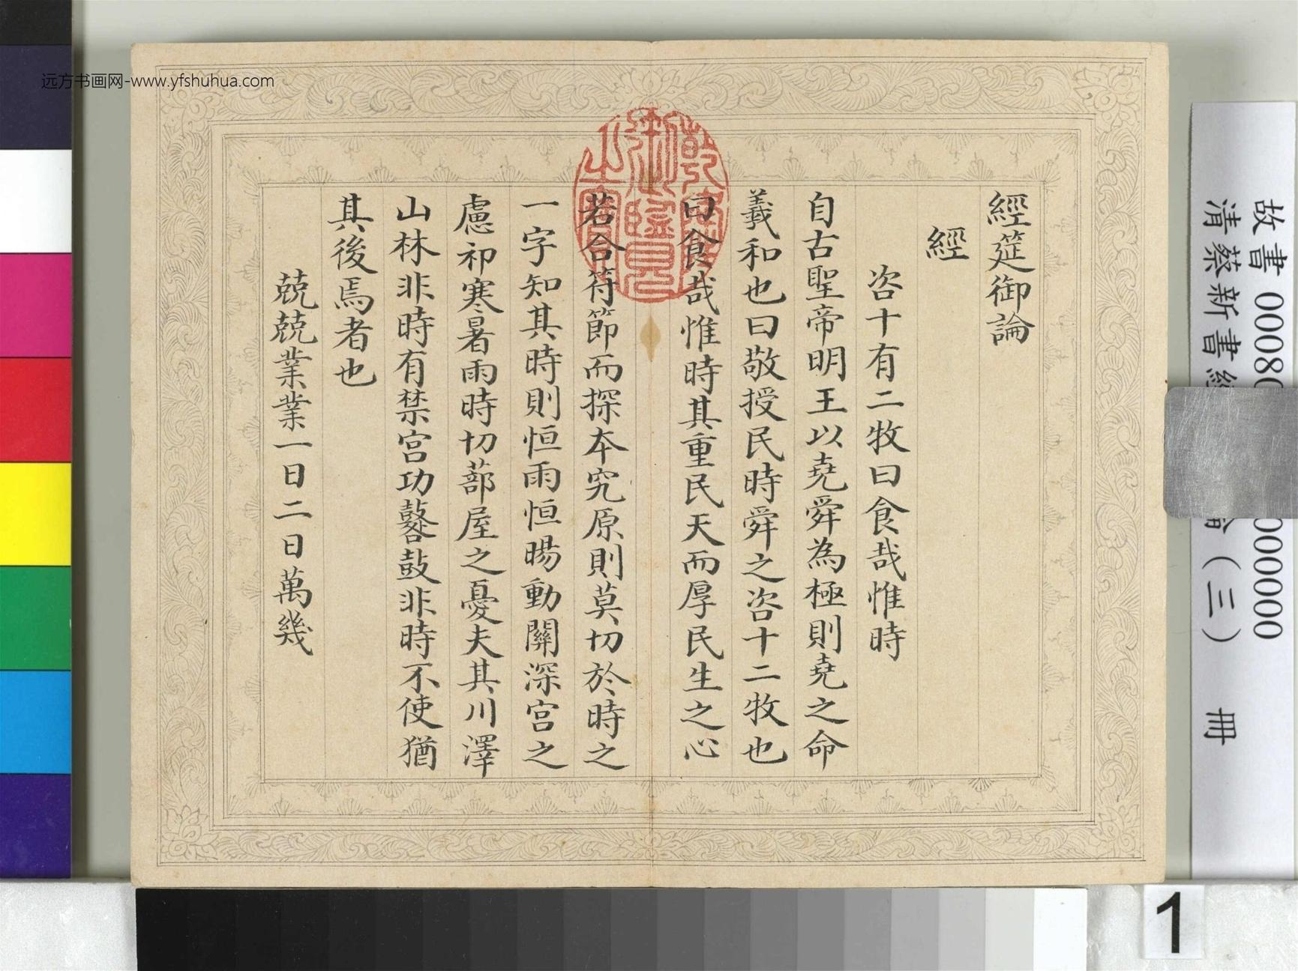 远方书画网-www.yfshuhua.com
經筵御論
經
咨十有二牧曰食哉惟時
自古聖帝明王以堯舜為極則堯之命
羲和也曰敬授民時舜之咨十二牧也
曰食哉惟時其重民天而厚民生之心
若合符節而探本究原則莫切於時之
一字知其時則恒雨恒暘動關深宮之
慮祁寒暑雨時切蔀屋之憂夫其川澤
山林非時有禁宮功鼛鼓非時不使猶
其後焉者也
兢兢業業一日二日萬幾
乾隆御覽之寶
故書 00080
000000
清蔡新書經
（三） 冊
1